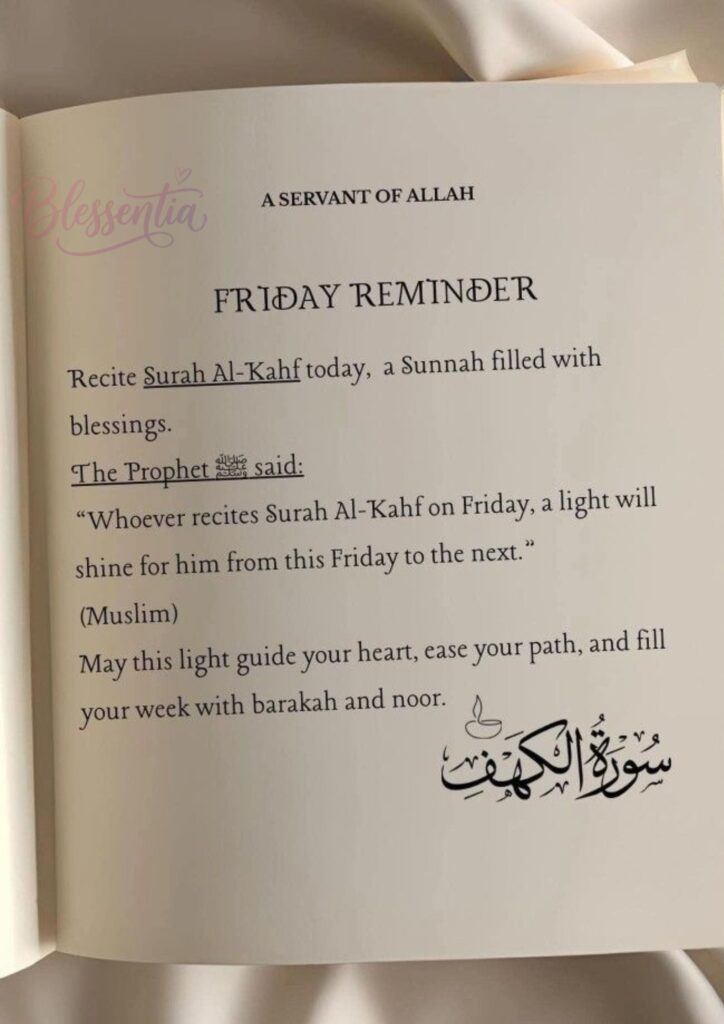 Blessentia
A SERVANT OF ALLAH
FRIDAY REMINDER
Recite Surah Al-Kahf today, a Sunnah filled with
blessings.
The Prophet ﷺ said:
“Whoever recites Surah Al-Kahf on Friday, a light will
shine for him from this Friday to the next.”
(Muslim)
May this light guide your heart, ease your path, and fill
your week with barakah and noor.
سُورَةُ الكَهَفِ